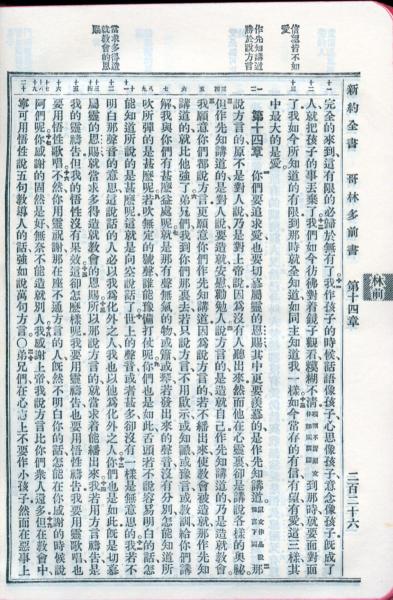 新約全書 哥林多前書 第十四章 二百二十六
林前
信望皆不如愛
作先知講道勝於說方言
當求多得造就教會的恩賜
完全的來到這有限的必歸於無有了我作孩子的時候話語像孩子心思像孩子意念像孩子既成了
人就把孩子的事丟棄了我們如今彷彿對着鏡子觀看糢糊不清到那時就要面對面
了我如今所知道的有限到那時就全知道如同主知道我一樣如今常存的有信有望有愛這三樣其
中最大的是愛
第十四章 你們要追求愛也要切慕屬靈的恩賜其中更要羡慕的是作先知講道那
說方言的原不是對人說乃是對上帝說因為沒有人聽出來然而他在心靈裏卻是講說各樣的奧祕
但作先知講道的是對人說要造就安慰勸勉人說方言的是造就自己作先知講道的乃是造就教會
我願意你們都說方言更願意你們作先知講道因為說方言的若不繙出來使教會被造就那作先知
講道的就比他強了弟兄們我到你們那裏去若只說方言不用啟示或知識或豫言或教訓給你們講
解我與你們有甚麽益處呢就是那有聲無氣的物或簫或琴若發出來的聲音沒有分別怎能知道所
吹所彈的是甚麽呢若吹無定的號聲誰能豫備打仗呢你們也是如此舌頭若不說容易明白的話怎
能知道所說的是甚麽呢這就是向空說話了世上的聲音或者甚多卻沒有一樣是無意思的我若不
明白那聲音的意思這說話的人必以我為化外之人我也以他為化外之人你們也是如此既是切慕
屬靈的恩賜就當求多得造就教會的恩賜所以那說方言的就當求着能繙出來我若用方言禱告是
我的靈禱告但我的悟性沒有果效這卻怎麽樣呢我要用靈禱告也要用悟性禱告我要用靈歌唱也
要用悟性歌唱不然你用靈祝謝那在座不通方言的人既然不明白你的話怎能在你感謝的時候說
阿們呢你感謝的固然是好無奈不能造就別人我感謝上帝我說方言比你們眾人還多但在教會中
寧可用悟性說五句教導人的話強如說萬句方言○弟兄們在心志上不要作小孩子然而在惡事上